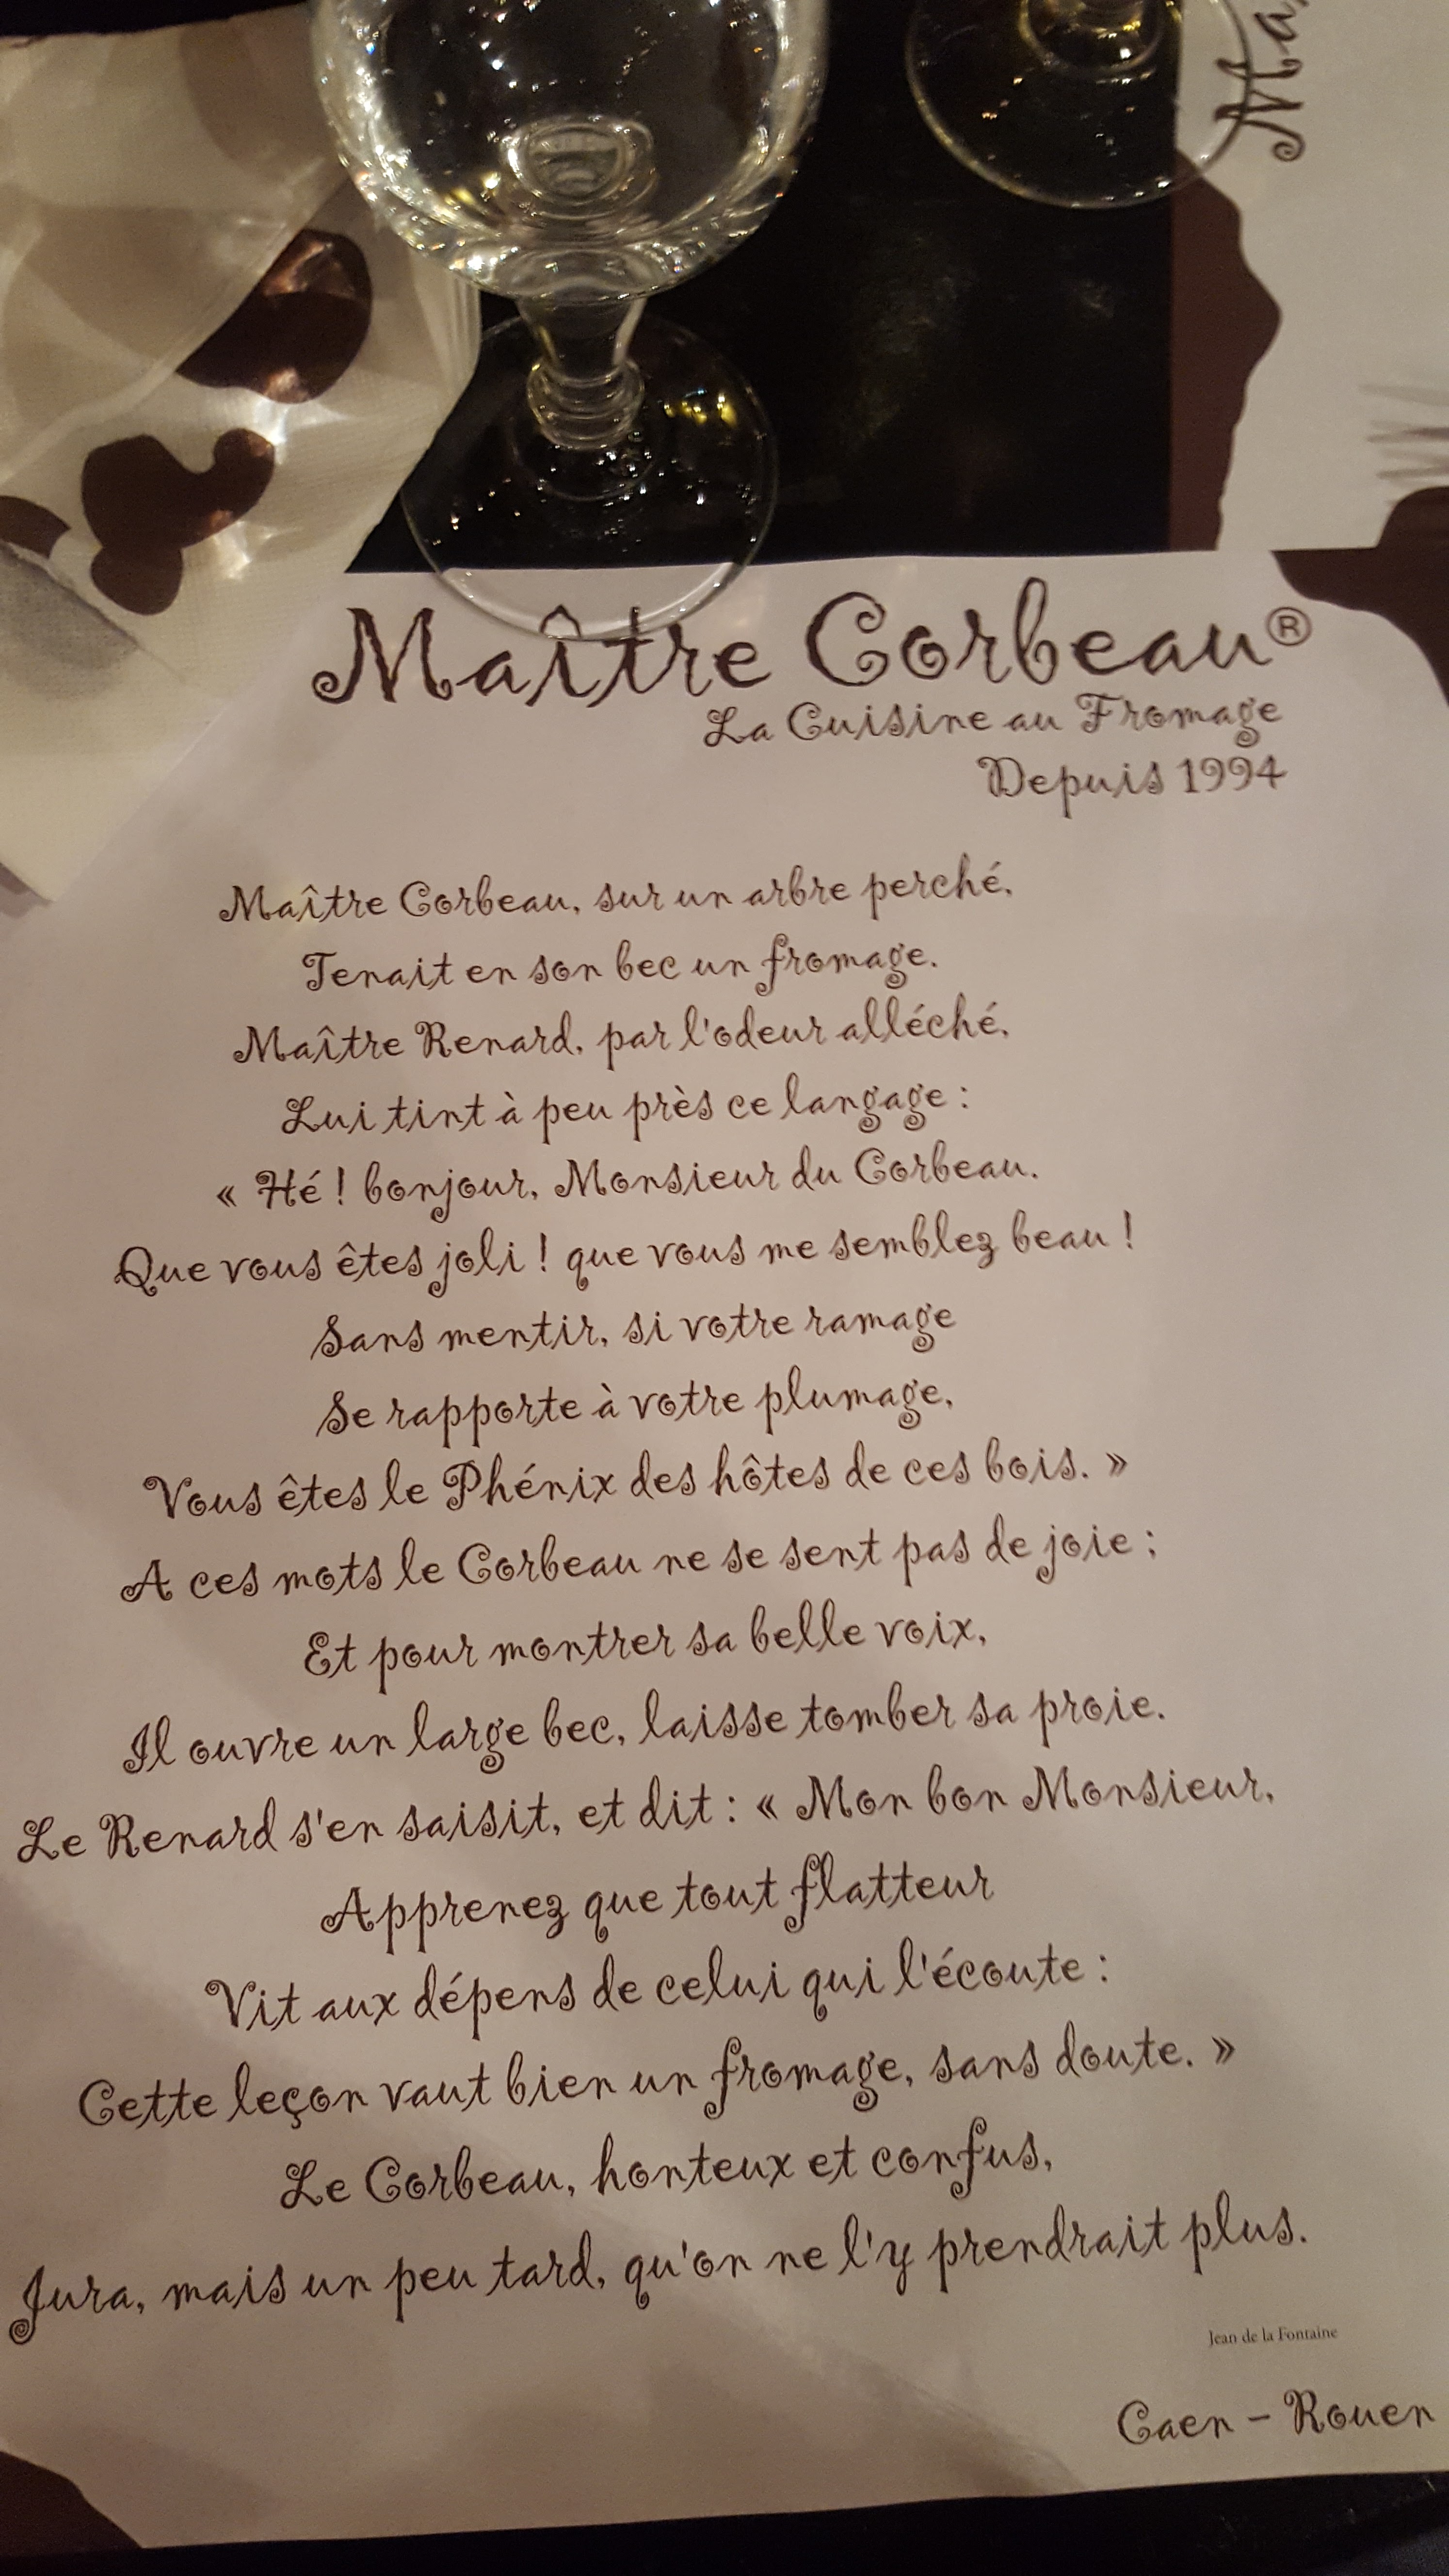 Ma
Maître Corbeau®
La Cuisine au Fromage
Depuis 1994
Maître Corbeau, sur un arbre perché,
Tenait en son bec un fromage.
Maître Renard, par l'odeur alléché,
Lui tint à peu près ce langage :
« Hé ! bonjour, Monsieur du Corbeau.
Que vous êtes joli ! que vous me semblez beau !
Sans mentir, si votre ramage
Se rapporte à votre plumage,
Vous êtes le Phénix des hôtes de ces bois. »
A ces mots le Corbeau ne se sent pas de joie ;
Et pour montrer sa belle voix,
Il ouvre un large bec, laisse tomber sa proie.
Le Renard s'en saisit, et dit : « Mon bon Monsieur,
Apprenez que tout flatteur
Vit aux dépens de celui qui l'écoute :
Cette leçon vaut bien un fromage, sans doute. »
Le Corbeau, honteux et confus,
Jura, mais un peu tard, qu'on ne l'y prendrait plus.
Jean de la Fontaine
Caen - Rouen